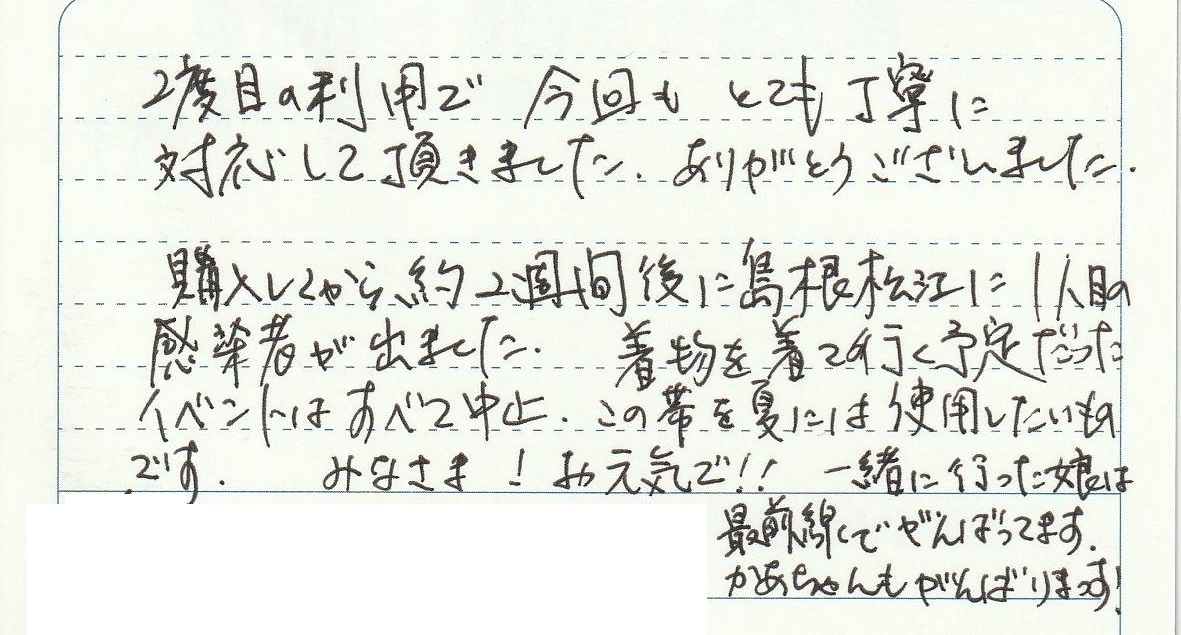 2度目の利用で 今回も とても丁寧に
対応して頂きました. ありがとうございました.
購入してから約2週間後に島根松江に1人目の
感染者が出ました. 着物を着ての行く予定だった
イベントはすべて中止. この帯を夏には使用したいもの
です. みなさま!お元気で!! 一緒に行った娘は
最前線でがんばってます.
かあちゃんもがんばりまっす!